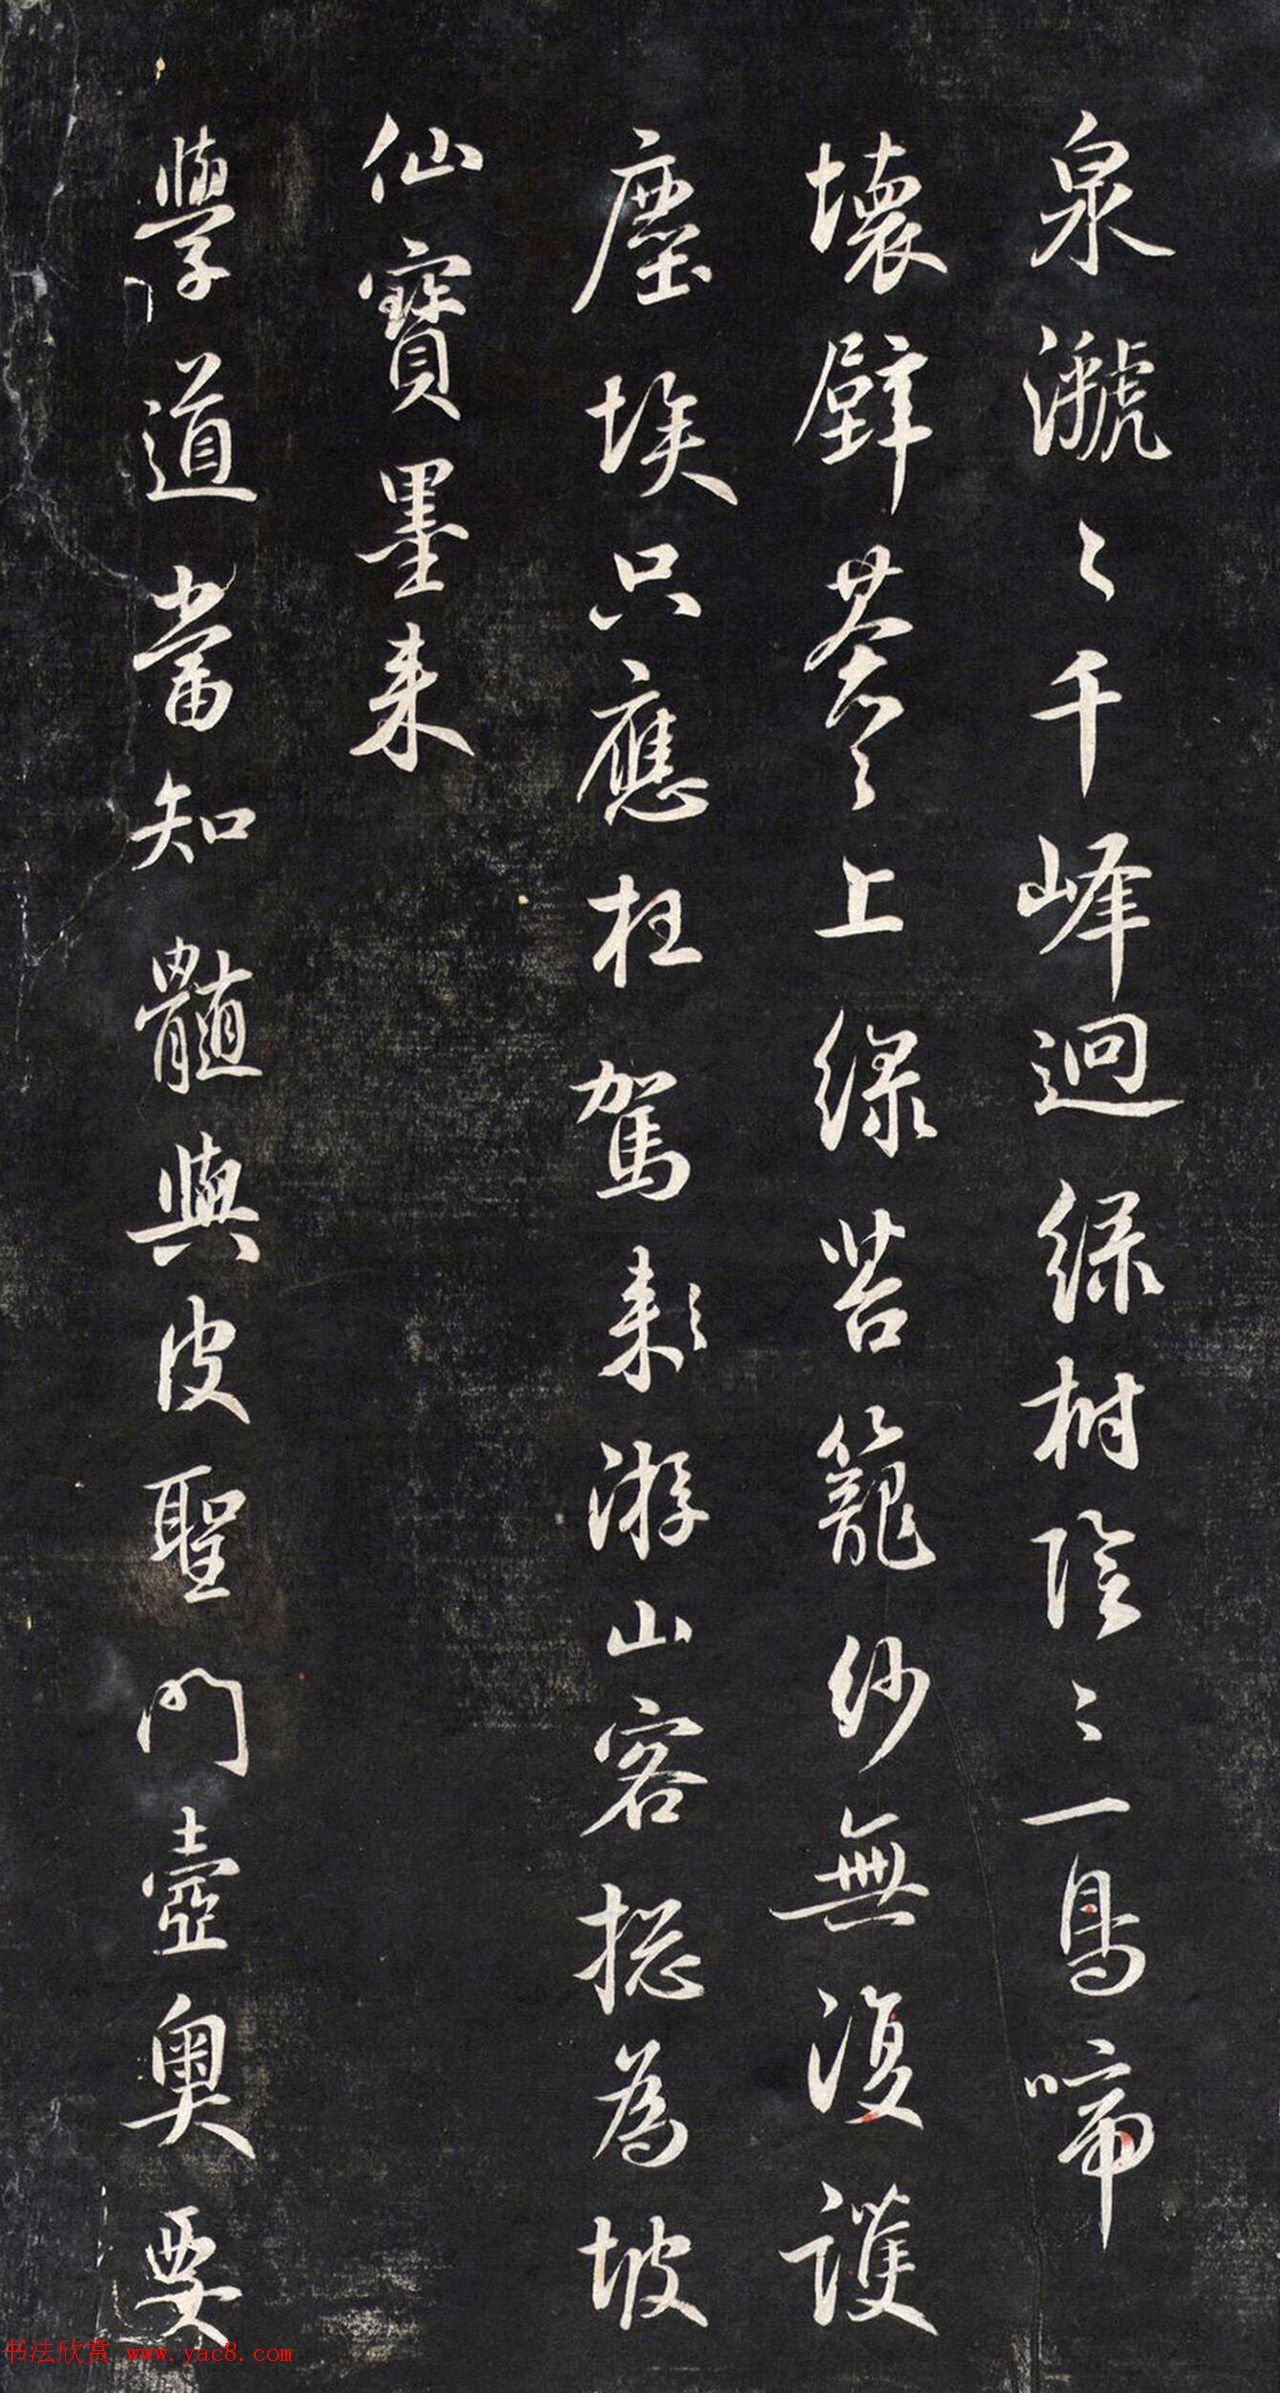 泉㶁〻千峰迴緑樹陰〻一鳥啼
壞壁苍〻上緑苔籠紗無復護
塵埃只應枉駕頼游山客揔為坡
仙寳墨来
學道當知髓與皮聖門壼奥要
书法欣赏 www.yac8.com